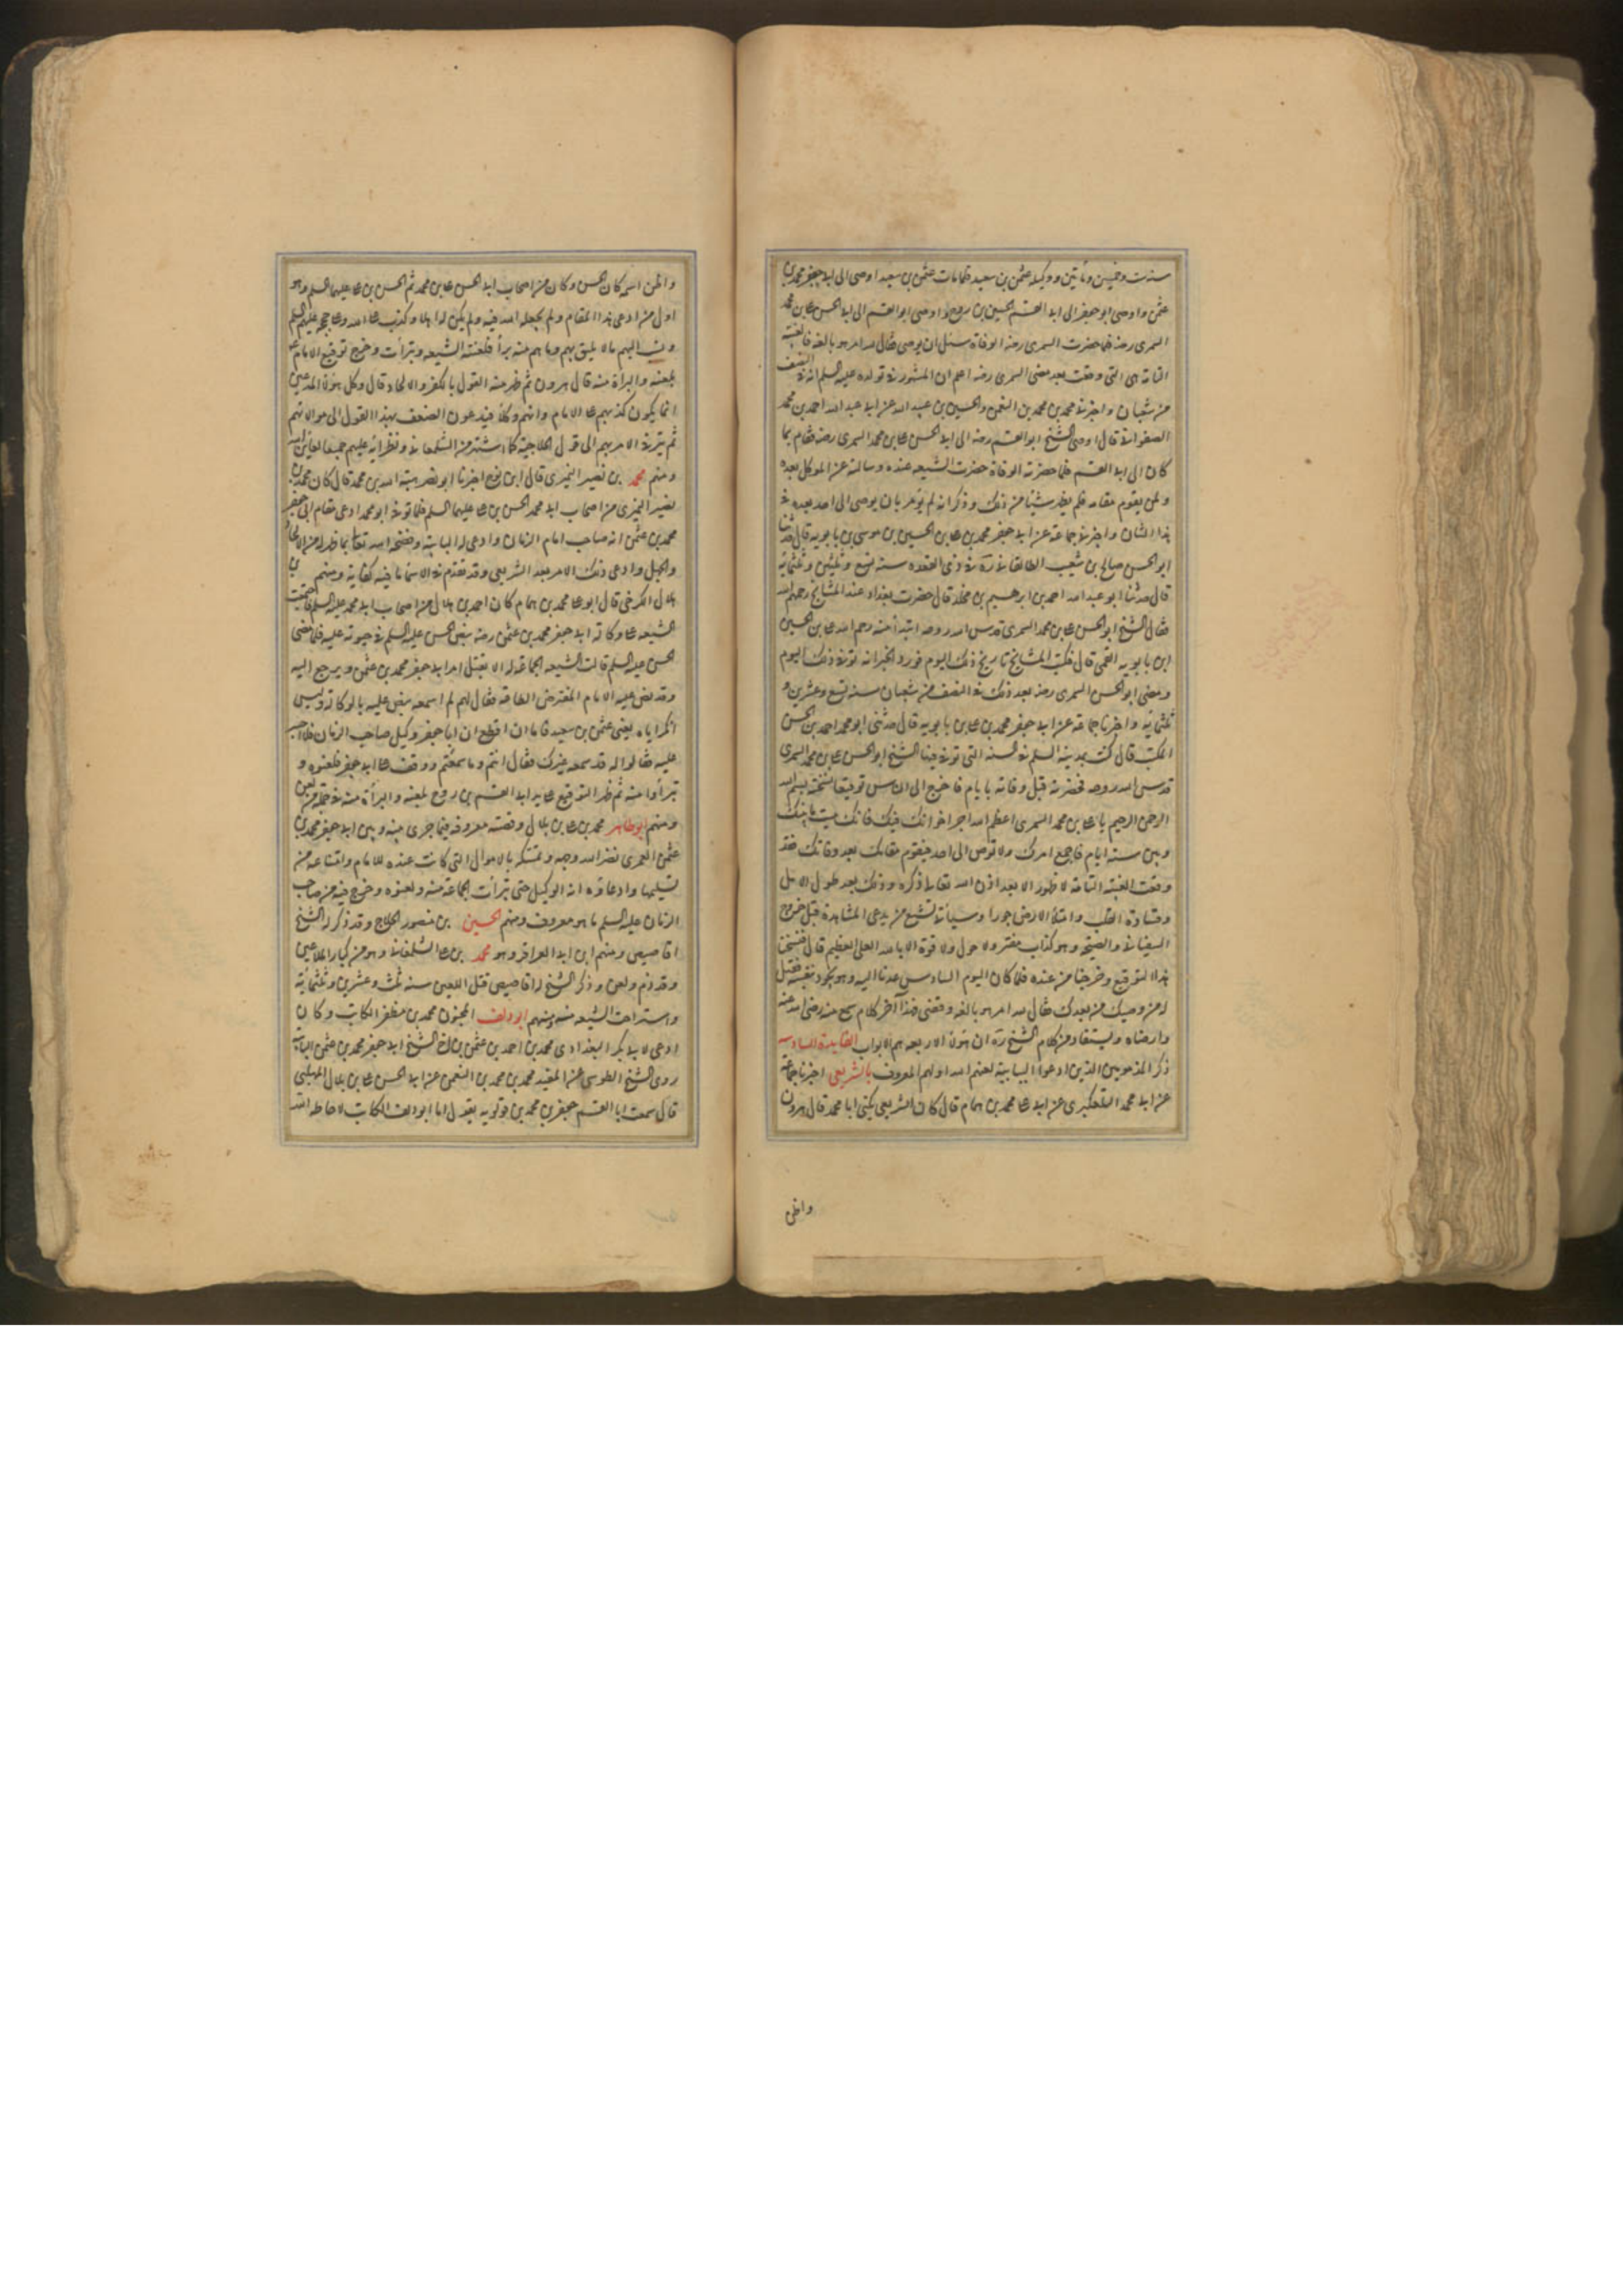 سنة ست وخمسين ومأتين ووكيله عثمن بن سعيد فلما مات عثمن بن سعيد اوصى الى ابى جعفر محمد بن
عثمن واوصى ابو جعفر الى ابى القسم الحسين بن روح واوصى ابو القسم الى ابى الحسن على بن محمد
السمرى رضه فلما حضرت السمرى رضه الوفاة سئل ان يوصى فقال لله امر هو بالغه فالغيبة
التامة هى التى وقعت بعد مضى السمرى رضه اعلم ان المشهور فى تولده عليه السلم انه فى النصف
من شعبان واخبرنى محمد بن محمد بن النعمن والحسين بن عبيد الله عن ابى عبد الله احمد بن محمد
الصفوانى قال اوصى الشيخ ابو القسم رضه الى ابى الحسن على بن محمد السمرى رضه فقام بما
كان الى ابى القسم فلما حضرته الوفاة حضرت الشيعه عنده وسالته عن الموكل بعده
ولمن يقوم مقامه فلم يظهر شيئا من ذلك وذكر انه لم يؤمر بان يوصى الى احد بعده فى
هذا الشان واخبرنى جماعة عن ابى جعفر محمد بن على بن الحسين بن موسى بن بابويه قال حدثنا
ابو الحسن صالح بن شعيب الطالقانى ره فى ذى القعده سنه تسع وثلثين وثلثمائة
قال حدثنا ابو عبد الله احمد بن ابرهيم بن مخلد قال حضرت بغداد عند المشايخ رحمهم الله
فقال الشيخ ابو الحسن على بن محمد السمرى قدس الله روحه ابتدأ منه رحم الله على بن الحسين
ابن بابويه القمى قال فكتب المشايخ تاريخ ذلك اليوم فورد الخبر انه توفى ذلك اليوم
ومضى ابو الحسن السمرى رضه بعد ذلك فى النصف من شعبان سنه تسع وعشرين و
ثلثمائه واخبرنا جماعة عن ابى جعفر محمد بن على بن بابويه قال حدثنى ابو محمد احمد بن الحسن
المكتب قال كنت بمدينة السلم فى السنه التى توفى فيها الشيخ ابو الحسن على بن محمد السمرى
قدس الله روحه فحضرته قبل وفاته بايام فاخرج الى الناس توقيعا نسخته بسم الله
الرحمن الرحيم يا على بن محمد السمرى اعظم الله اجر اخوانك فيك فانك ميت ما بينك
وبين ستة ايام فاجمع امرك ولا توص الى احد فيقوم مقامك بعد وفاتك فقد
وقعت الغيبة التامة لا ظهور الا بعد اذن الله تعالى ذكره وذلك بعد طول الامل
وقساوة القلب وامتلأ الارض جورا وسيأتى شيع من يدعى المشاهدة قبل خروج
السفيانى والصيحة وهو كذاب مفتر ولا حول ولا قوة الا بالله العلى العظيم قال فنسخنا
هذا التوقيع وخرجنا من عنده فلما كان اليوم السادس عدنا اليه وهو يجود بنفسه فقيل
له من وصيك من بعدك فقال لله امر هو بالغه وقضى فهذا آخر كلام سمع منه رضى الله عنه
وارضاه ويستفاد من كلام الشيخ ره ان هؤلاء الاربعه هم الابواب الفايدة السادسه
ذكر المذمومين الذين ادعوا البابية لعنهم الله اولهم المعروف بالشريعى اخبرنا جماعة
عن ابى محمد التلعكبرى عن ابى على محمد بن همام قال كان الشريعى يكنى ابا محمد قال هرون
واظن
واظن اسمه كان الحسن وكان من اصحاب ابى الحسن على بن محمد ثم الحسن بن على عليهما السلم وهو
اول من ادعى هذا المقام ولم يجعله الله فيه ولم يكن له اهلا وكذب على الله وعلى حججه عليهم السلم
ونسب اليهم ما لا يليق بهم وما هم منه برآ فلعنته الشيعه وتبرأت وخرج توقيع الامام
بلعنه والبراة منه قال هرون ثم ظهر منه القول بالكفر والالحاد قال وكل هؤلاء المدعين
انما يكون كذبهم على الامام وانهم وكلاؤه فيدعون الضعف بهذا القول الى موالاتهم
ثم يترقى الامر بهم الى قول الحلاجية كما اشتهر من الشلمغانى ونظرائه عليهم جميعا لعاين الله
ومنهم محمد بن نصير النميرى قال ابن نوح اخبرنا ابو نصر هبة الله بن محمد قال كان محمد بن
نصير النميرى من اصحاب ابى محمد الحسن بن على عليهما السلم فلما توفى ابو محمد ادعى مقام ابى جعفر
محمد بن عثمن انه صاحب امام الزمان وادعى له البابية وفضحه الله تعالى بما ظهر منه من الالحاد
والجهل وادعى ذلك الامر بعد الشريعى وقد تقدم فى الاسماء ما فيه كفاية ومنهم
هلال الكرخى قال ابو على محمد بن همام كان احمد بن هلال من اصحاب ابى محمد عليه السلم فاجتمعت
الشيعه على وكالة ابى جعفر محمد بن عثمن رضه بنص الحسن عليه السلم فى حيوته عليه فلما مضى
الحسن عليه السلم قالت الشيعه الجماعة له الا تقبل امر ابى جعفر محمد بن عثمن ويرجع اليه
وقد نص عليه الامام المفترض الطاعة فقال لهم لم اسمعه ينص عليه بالوكالة وليس
انكر اباه يعنى عثمن بن سعيد فاما ان اقطع ان ابا جعفر وكيل صاحب الزمان فلا اجسر
عليه فقالوا له قد سمعه غيرك فقال انتم وما سمعتم ووقف على ابى جعفر فلعنوه و
تبرأوا منه ثم ظهر التوقيع على يد ابى القسم بن روح بلعنه والبرأة منه فى جملة من لعن
ومنهم ابو طاهر محمد بن على بن بلال وقصته معروفه فيما جرى بينه وبين ابى جعفر محمد بن
عثمن العمرى نضر الله وجهه وتمسكه بالاموال التى كانت عنده للامام وامتناعه من
تسليمها وادعاؤه انه الوكيل حتى تبرأت الجماعة منه ولعنوه وخرج فيه من صاحب
الزمان عليه السلم ما هو معروف ومنهم الحسين بن منصور الحلاج وقد ذكر له الشيخ
اقاصيص ومنهم ابن ابى العزاقر وهو محمد بن على الشلمغانى وهو من كبار الملاعين
وقد ذم ولعن وذكر الشيخ له اقاصيص قتل اللعين سنه ثلث وعشرين وثلثمائة
واستراحت الشيعه منه ومنهم ابو دلف المجنون محمد بن مظفر الكاتب وكان
ادعى لابى بكر البغدادى محمد بن احمد بن عثمن بن اخ الشيخ ابى جعفر محمد بن عثمن البابية
روى الشيخ الطوسى عن المفيد محمد بن محمد بن النعمن عن ابى الحسن على بن بلال المهلبى
قال سمعت ابا القسم جعفر بن محمد بن قولويه يقول اما ابو دلف الكاتب لا حاطه الله